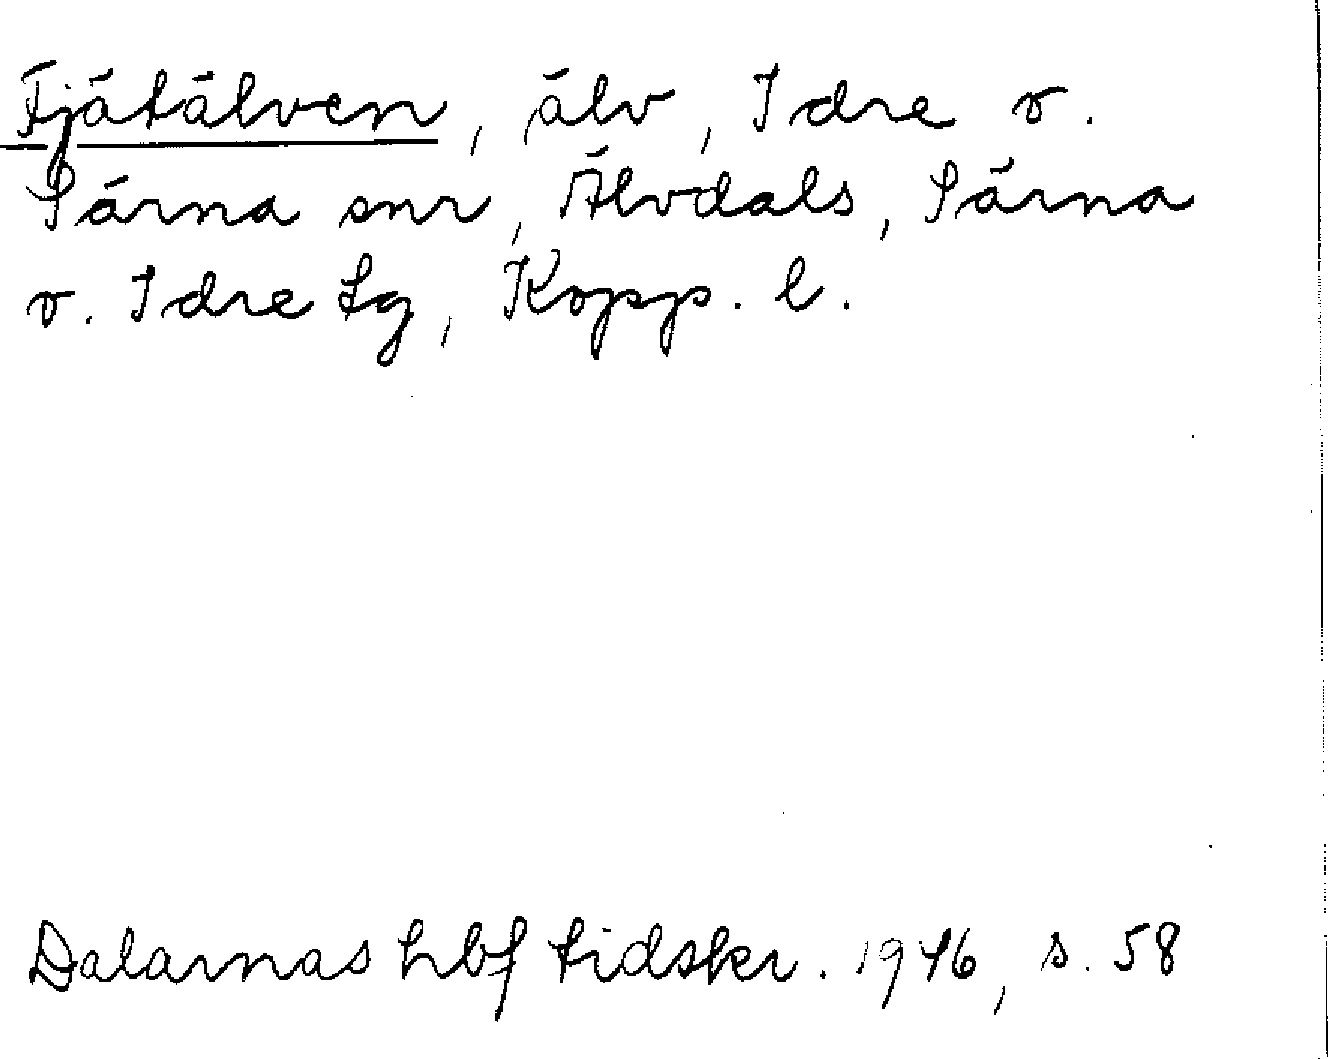 Fjätälven, älv, Idre o.
Särna snr, Älvdals, Särna
o. Idre tg, Kopp. l.
Dalarnas hbf tidskr. 1946, s. 58